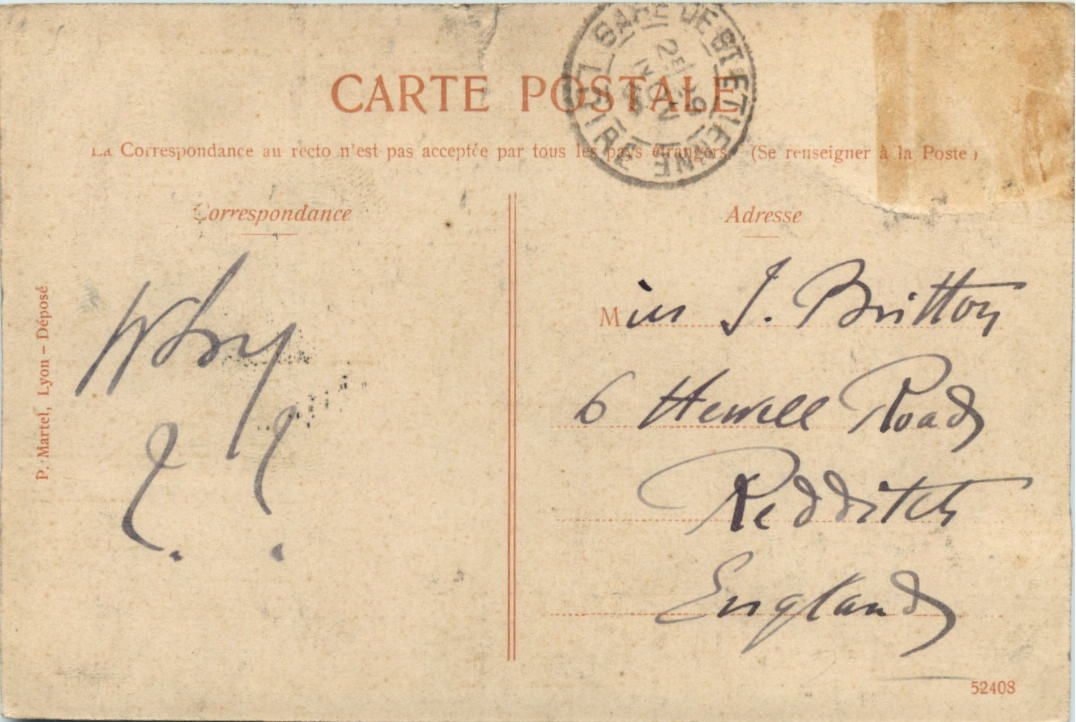 CARTE POSTALE
GARE DE ST ETIENNE
LOIRE
La Correspondance au recto n'est pas acceptée par tous les pays étrangers. (Se renseigner à la Poste)
Correspondance
Why
? ?
P. Martel, Lyon – Déposé
Adresse
Miss J. Britton
6 Hewell Road
Redditch
England
52408